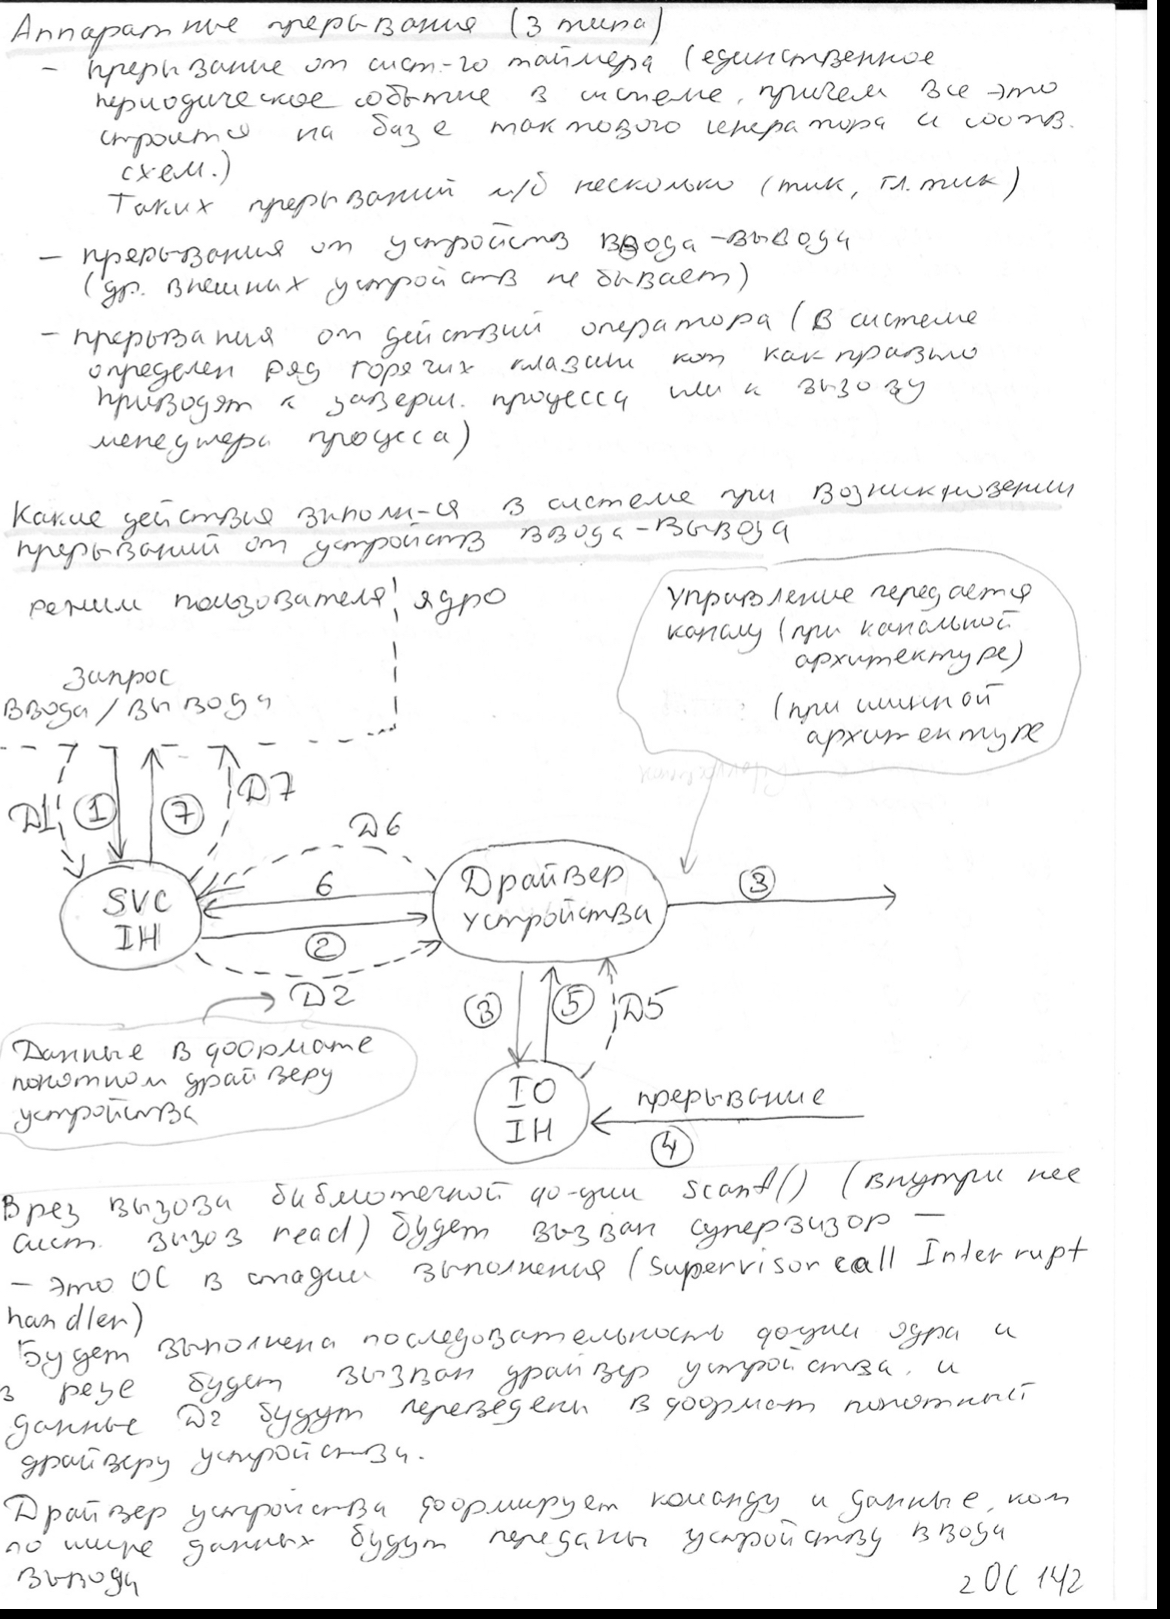 Аппаратные прерывания (3 типа)
- прерывание от сист-го таймера (единственное
периодическое событие в системе, причем все это
строится на базе тактового генератора и соотв.
схем.)
Таких прерываний м/б несколько (тик, гл.тик)
- прерывания от устройств ввода-вывода
(др. внешних устройств не бывает)
- прерывания от действий оператора (в системе
определен ряд горячих клавиш кот как правило
приводят к заверш. процесса или к вызову
менеджера процесса)
Какие действия выполн-ся в системе при возникновении
прерываний от устройств ввода-вывода
режим пользователя ядро
Управление передается
каналу (при канальной
архитектуре)
(при шинной
архитектуре
запрос
ввода/вывода
D1 1 7 D7
D6
SVC
IH
6
2
D2
Драйвер
устройства
3
3 5 D5
Данные в формате
понятном драйверу
устройства
IO
IH
прерывание
4
В рез вызова библиотечной ф-ции scanf() (внутри нее
сист. вызов read) будет вызван супервизор —
- это ОС в стадии выполнения (Supervisor call Interrupt
handler)
Будет выполнена последовательность ф-ции ядра и
в рез-е будет вызван драйвер устройства, и
данные D2 будут переведены в формат понятный
драйверу устройства.
Драйвер устройства формирует команду и данные, кот
по шине данных будут переданы устройству ввода
вывода
2 ОС 14/2